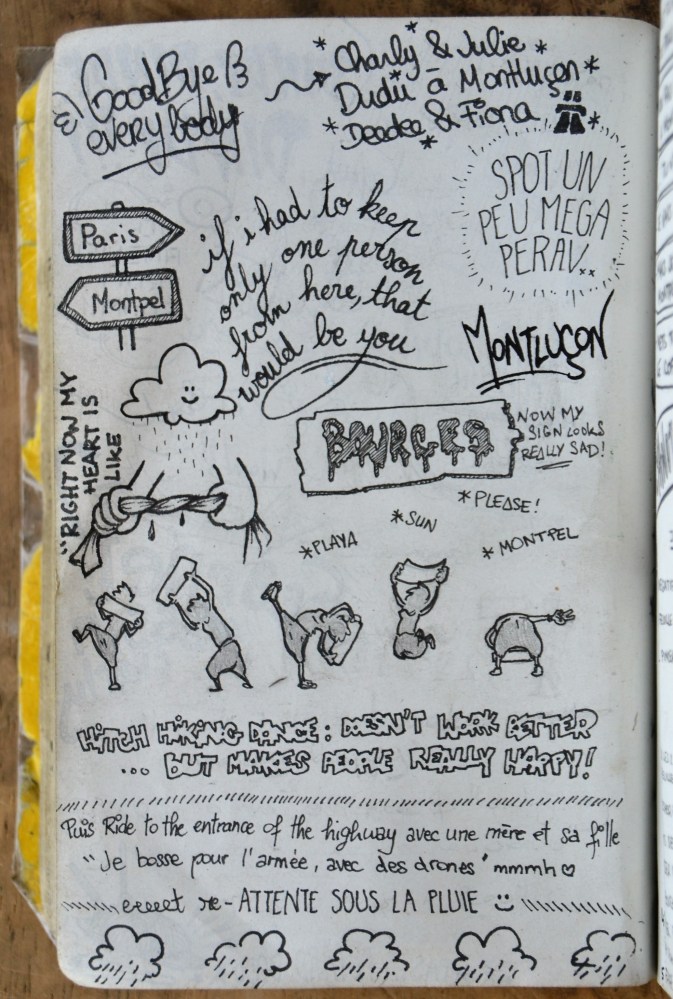 GoodBye
everybody
* Charly & Julie *
Dudu à Montluçon *
* Deedee & Fiona *
SPOT UN
PEU MEGA
PERAV...
Paris
Montpel
if i had to keep
only one person
from here, that
would be you
MONTLUÇON
"RIGHT NOW MY
HEART IS
LIKE
BOURGES
NOW MY
SIGN LOOKS
REALLY SAD!
*PLAYA
*SUN
*PLEASE!
*MONTPEL
HITCH HIKING DANCE: DOESN'T WORK BETTER
... BUT MAKES PEOPLE REALLY HAPPY!
Puis Ride to the entrance of the highway avec une mère et sa fille
"Je bosse pour l'armée, avec des drones" mmmh ♡
eeeeet re-ATTENTE SOUS LA PLUIE